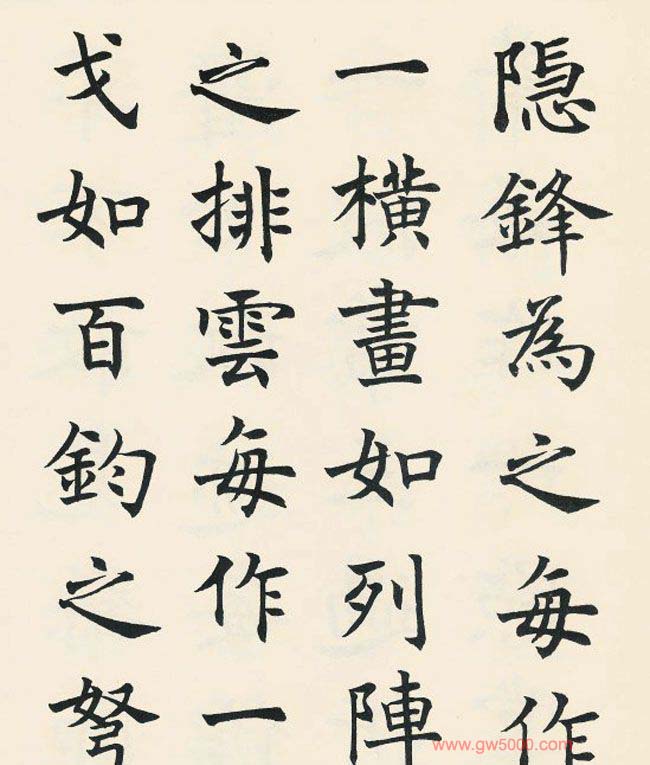 隠鋒為之每作
一橫畫如列陣
之排雲每作一
戈如百鈞之弩
www.gw5000.com